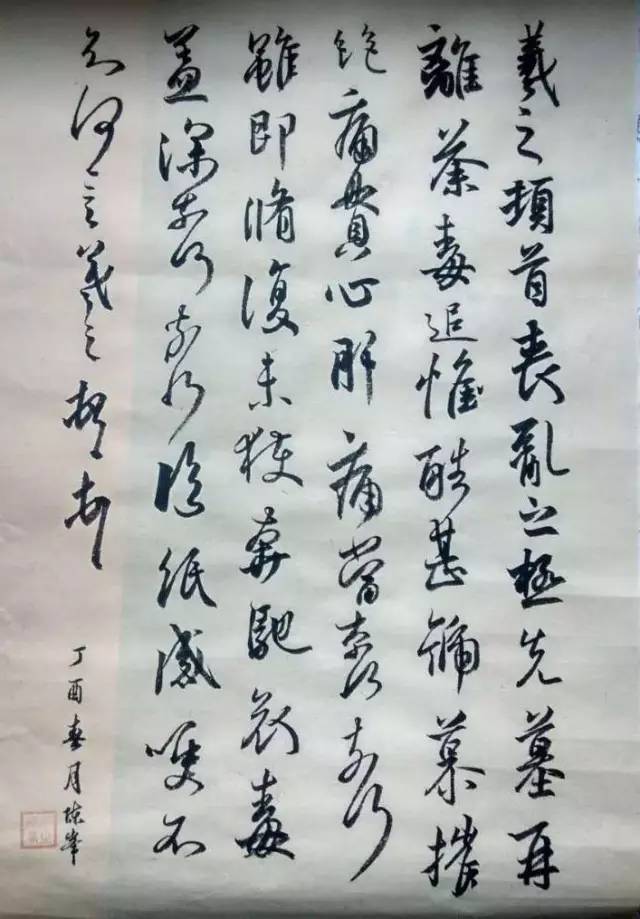 羲之頓首喪亂之極先墓再
離荼毒追惟酷甚號慕摧
絕痛貫心肝痛當奈何奈何
雖即脩復未獲奔馳哀毒
益深奈何奈何臨紙感哽不
知何言羲之頓首頓首
丁酉春月陳峯